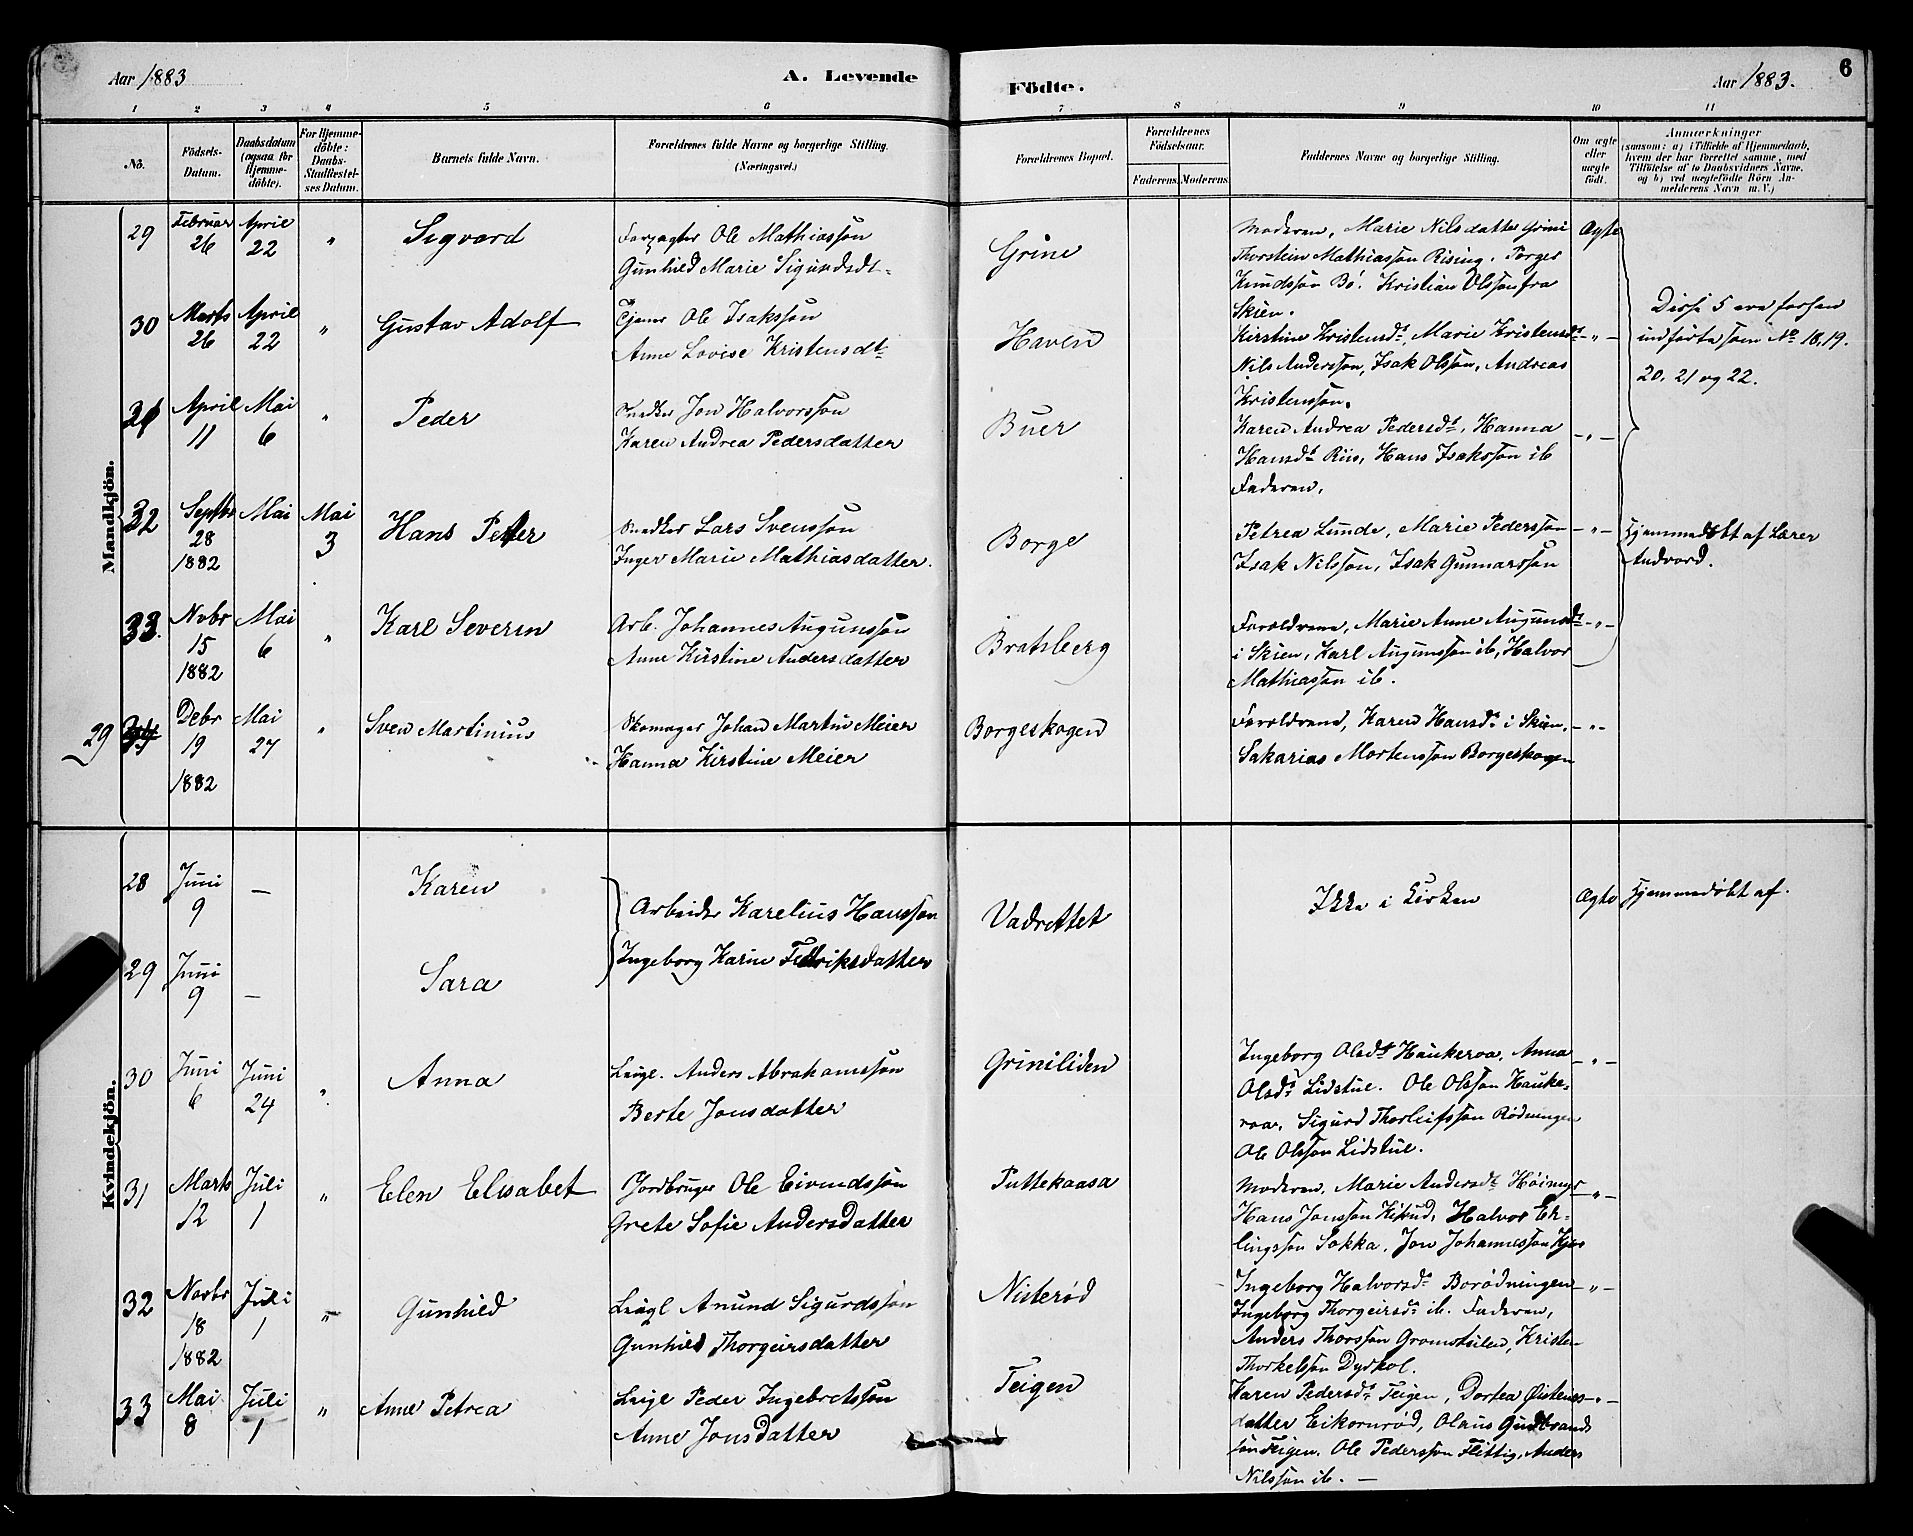 Aar 1883
A. Levende
Födte.
Aar 1883.
6
1 2 3 4 5 6 7 8 9 10 11
No.
Födsels-
Datum.
Daabsdatum
(ogsaa for
Hjemme-
döbte).
For Hjemme-
döbte:
Daabs-
Stadfæstel-
ses Datum.
Barnets fulde Navn.
Forældrenes fulde Navne og borgerlige Stilling.
(Næringsvei.)
Forældrenes Bopæl.
Forældrenes
Födselsaar.
Faderens. Moderens.
Faddernes Navne og borgerlige Stilling.
Om ægte
eller
uægte
født.
Anmærkninger
(saasom: a) i Tilfælde af Hjemmedaab,
hvem der har forrettet samme, med
Tilföielse af to Daabsvidners Navne.
og b) ved uægtefödte Börn An-
melderens Navn m. V.)
Mandkjön.
29 Februar 26 April 22 " Sigvard
Forpagter Ole Mathiassøn
Gunhild Marie Sigundsdt.
Grine
Moderen, Marie Nilsdatter Grini
Thorstein Mathiassøn Rising. Torger
Knudssøn Bø. Kristian Olssøn fra
Skien.
Ægte
30 Marts 26 April 22 " Gustav Adolf
Tjener Ole Isakssøn
Anne Lovise Kristensdt.
Haven
Kirstine Kristensdt, Marie Kristensdt
Nils Anderssøn, Isak Olssøn, Andreas
Kristenssøn.
-"-
Disse 5 ere forhen
indførte som No 18, 19.
20. 21 og 22.
31 April 11 Mai 6 " Peder
Snedker Jon Halvorssøn
Karen Andrea Pedersdatter
Buer
Karen Andrea Pedersdt. Hanna
Hansdt Riis, Hans Isakssøn ib
Faderen.
-"-
32 Septbr 28 1882 Mai Mai 3 Hans Petter
Snedker Lars Svenssøn
Inger Marie Mathiasdatter.
Borge
Petrea Lunde, Marie Pederssøn
Isak Nilssøn, Isak Gunnarssøn
-"-
Hjemmedøbt af Lærer
Andvord.
33. Novbr 15 1882 Mai 6 " Karl Severin
Arb. Johannes Augunssøn
Anne Kirstine Andersdatter
Bratsberg
Forældrene, Marie Anne Augunsdt
i Skien, Karl Augunssøn ib, Halvor
Mathiassøn ib.
-"-
29 34 Debr 19 1882 Mai 27 " Sven Martinius
Skomager Johan Martin Meier
Hanna Kirstine Meier
Borgeskogen
Forældrene, Karen Hansdt i Skien.
Sakarias Mortenssøn Borgeskogen
-"-
Kvindekjön.
28 Juni 9 — Karen
Arbeider Karelius Hanssøn
Ingeborg Karine Fedriksdatter
Vadrettet
Ikke i Kirken
Ægte
Hjemmedøbt af.
29 Juni 9 — Sara
30 Juni 6 Juni 24 " Anna
Leigl. Anders Abrahamssøn
Berte Jonsdatter
Griniliden
Ingeborg Olsdt Haukeraa, Anna
Olsdt Lidstul. Ole Olssøn Hauke-
raa, Sigurd Thorleifssøn Rødningen
Ole Olssøn Lidstul.
-"-
31 Marts 12 Juli 1 " Elen Elisabet
Jordbruger Ole Eivindssøn
Grete Sofie Andersdatter
Puttekaasa
Moderen, Marie Andersdt
Hans Jonssøn Halvor Er-
lingssøn Sokka. Jon Johannessøn
-"-
32 Novbr 18 1882 Juli 1 " Gunhild
Leigl Anund Sigurdssøn
Gunhild Thorgeirsdatter
Nisterød
Ingeborg Halvorsdt Borødningen
Ingeborg Thorgeirsdt ib. Faderen,
Anders Thorssøn Gromstulen, Kristen
Thorkelssøn Dyrkol.
-"-
33 Mai 8 Juli 1 " Anne Petrea
Leigl Peder Ingebretssøn
Anne Jonsdatter
Teigen
Karen Pedersdt Teigen, Dortea Øistens-
datter Eikornrød, Olaus Gudbrands
søn Teigen. Ole Pederssøn Flittig, Anders
Nilssøn ib. —
-"-